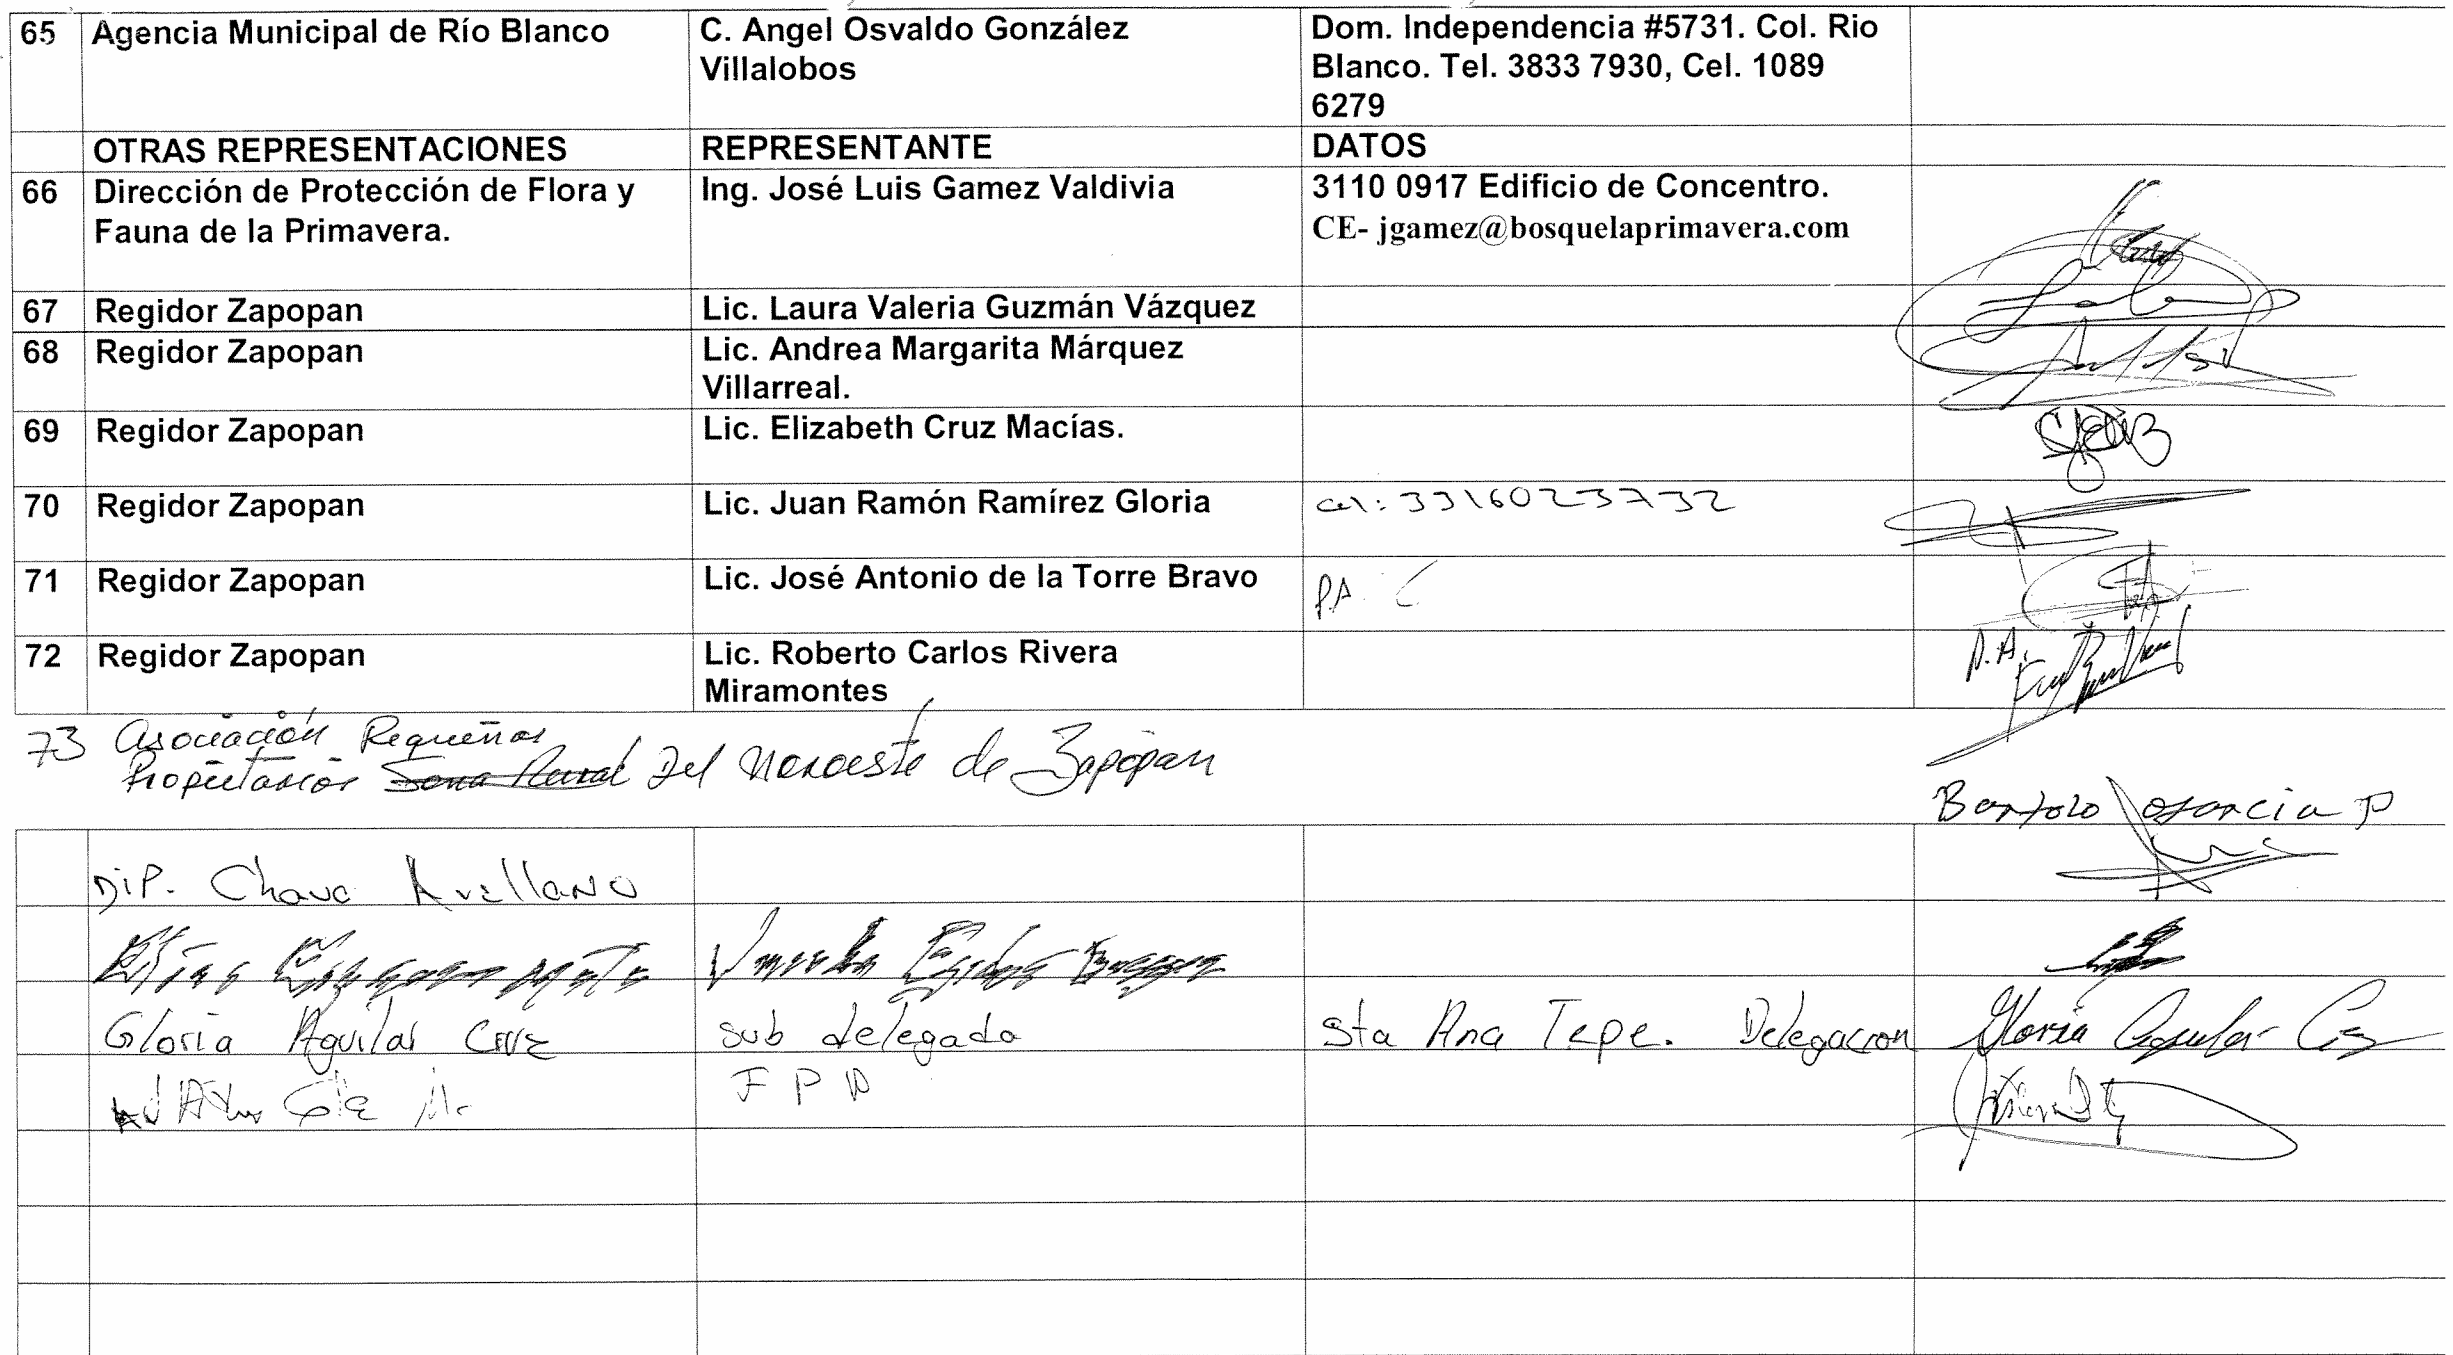 65 Agencia Municipal de Río Blanco C. Angel Osvaldo González Dom. Independencia #5731. Col. Rio
Villalobos Blanco. Tel. 3833 7930, Cel. 1089
6279
OTRAS REPRESENTACIONES REPRESENTANTE DATOS
66 Dirección de Protección de Flora y Ing. José Luis Gamez Valdivia 3110 0917 Edificio de Concentro.
Fauna de la Primavera. CE- jgamez@bosquelaprimavera.com
67 Regidor Zapopan Lic. Laura Valeria Guzmán Vázquez
68 Regidor Zapopan Lic. Andrea Margarita Márquez
Villarreal.
69 Regidor Zapopan Lic. Elizabeth Cruz Macías.
70 Regidor Zapopan Lic. Juan Ramón Ramírez Gloria cel: 3316023732
71 Regidor Zapopan Lic. José Antonio de la Torre Bravo P.A.
72 Regidor Zapopan Lic. Roberto Carlos Rivera P.A.
Miramontes
73 Asociación Pequeños
Propietarios Zona Rural Del Noroeste de Zapopan
Bartolo
Dip. Chava Arellano
Gloria Aguilar Cruz sub delegada Sta Ana Tepe. Delegacion Gloria Aguilar Cruz